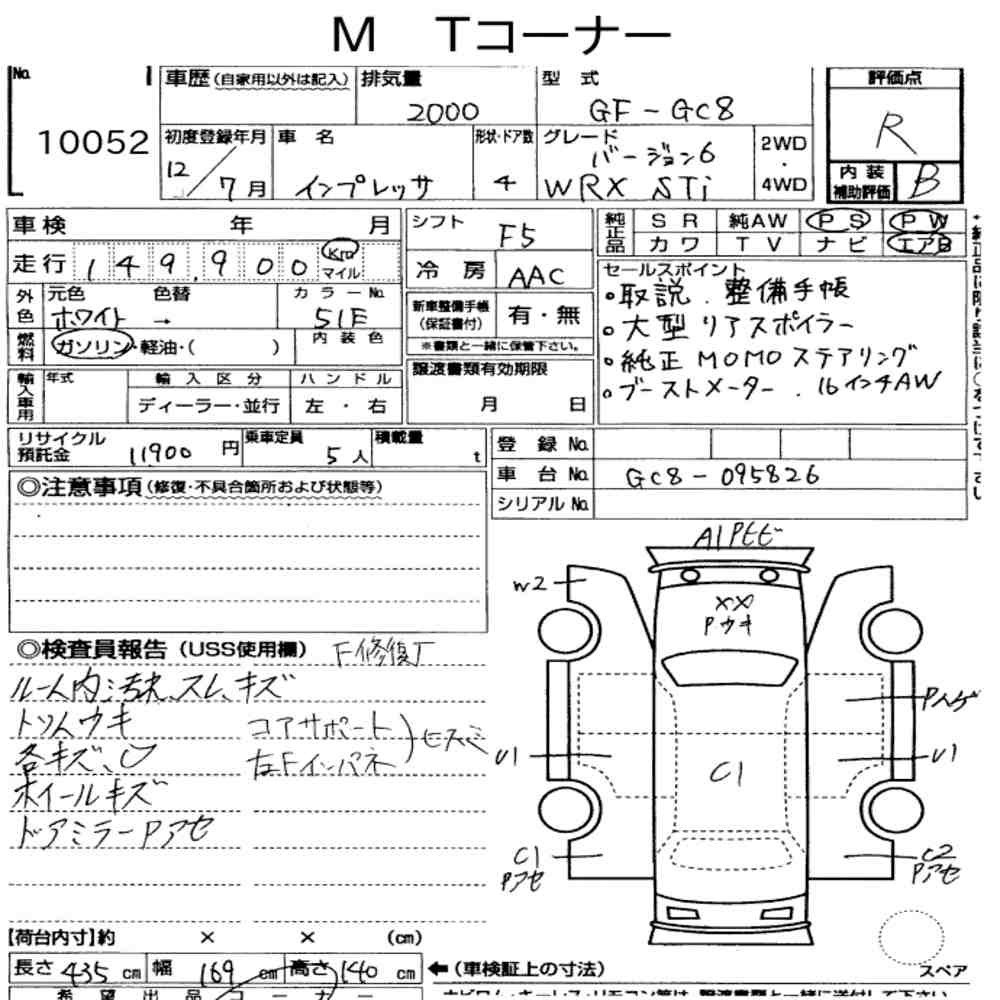 M Tコーナー
No. 10052
車歴(自家用以外は記入)
排気量 2000
型式 GF-GC8
評価点 R
内装補助評価 B
初度登録年月 12/7月
車名 インプレッサ
形状・ドア数 4
グレード バージョン6 WRX STi
2WD・4WD
車検 年 月
シフト F5
純正品 SR 純AW PS PW
カワ TV ナビ エアB
走行 149,900 Km マイル
冷房 AAC
セールスポイント
・取説.整備手帳
・大型リアスポイラー
・純正MOMOステアリング
・ブーストメーター.16インチAW
外色 元色 ホワイト → 色替
カラーNo. 51E
内装色
新車整備手帳(保証書付) 有・無
※書類と一緒に保管下さい。
燃料 ガソリン・軽油・( )
譲渡書類有効期限 月 日
輸入車用 年式 輸入区分 ハンドル
ディーラー・並行 左・右
リサイクル預託金 11900円
乗車定員 5人
積載量 t
登録No.
車台No. GC8-095826
シリアルNo.
◎注意事項(修復・不具合箇所および状態等)
◎検査員報告(USS使用欄) F修復歴
ルーム内汚れ、スレ、キズ
トリムウキ
コアサポート
各キズ、
左Fインパネ
ホイールキズ
ドアミラーPアセ
A1Pヒビ
W2
XX
Pウキ
Pハゲ
U1
U1
C1
C1
Pアセ
C2
Pアセ
【荷台内寸】約 × × (cm)
長さ 435cm 幅 169cm 高さ 140cm
←(車検証上の寸法)
スペア
希望出品コーナー